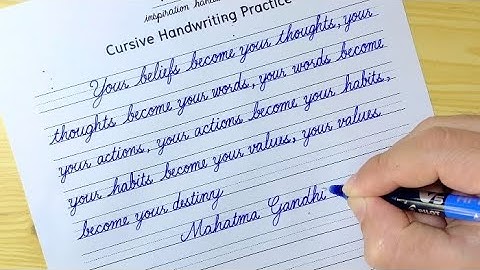 inspiration
Cursive Handwriting Practice
Your beliefs become your thoughts, your
thoughts become your words, your words become
your actions, your actions become your habits,
your habits become your values, your values
become your destiny
Mahatma Gandhi
V5
PILOT